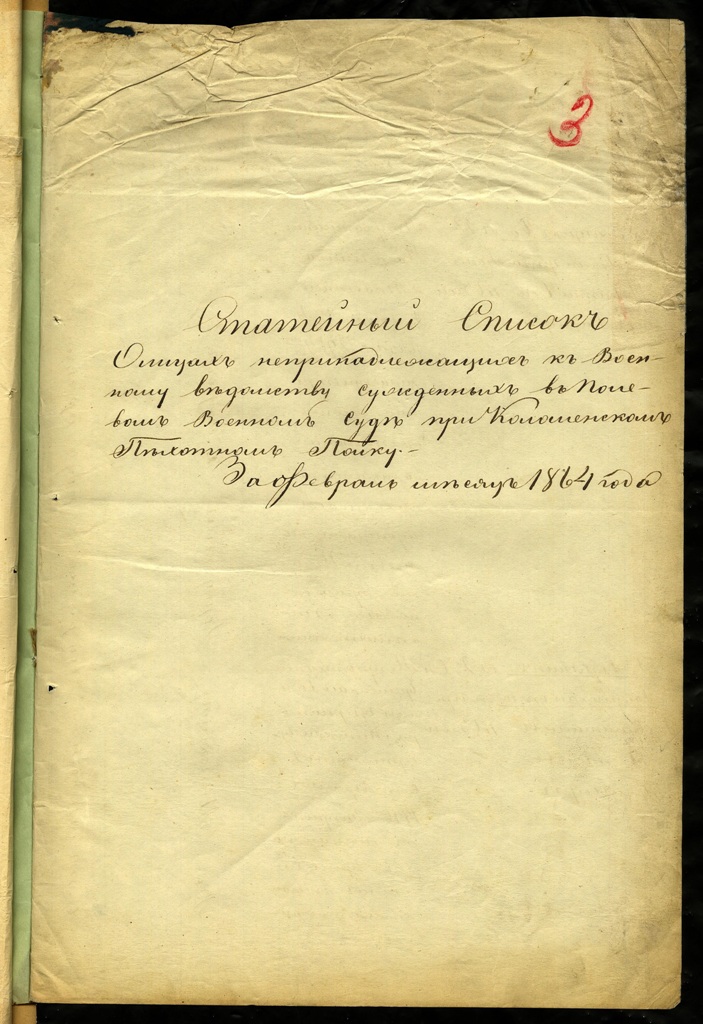 3
Статейный Списокъ
О лицахъ непринадлежащихъ къ Воен-
ному вѣдомству сужденныхъ въ Поле-
вомъ Военномъ Судѣ при Коломенскомъ
Пѣхотномъ Полку.-
За Февраль мѣсяцъ 1864 года